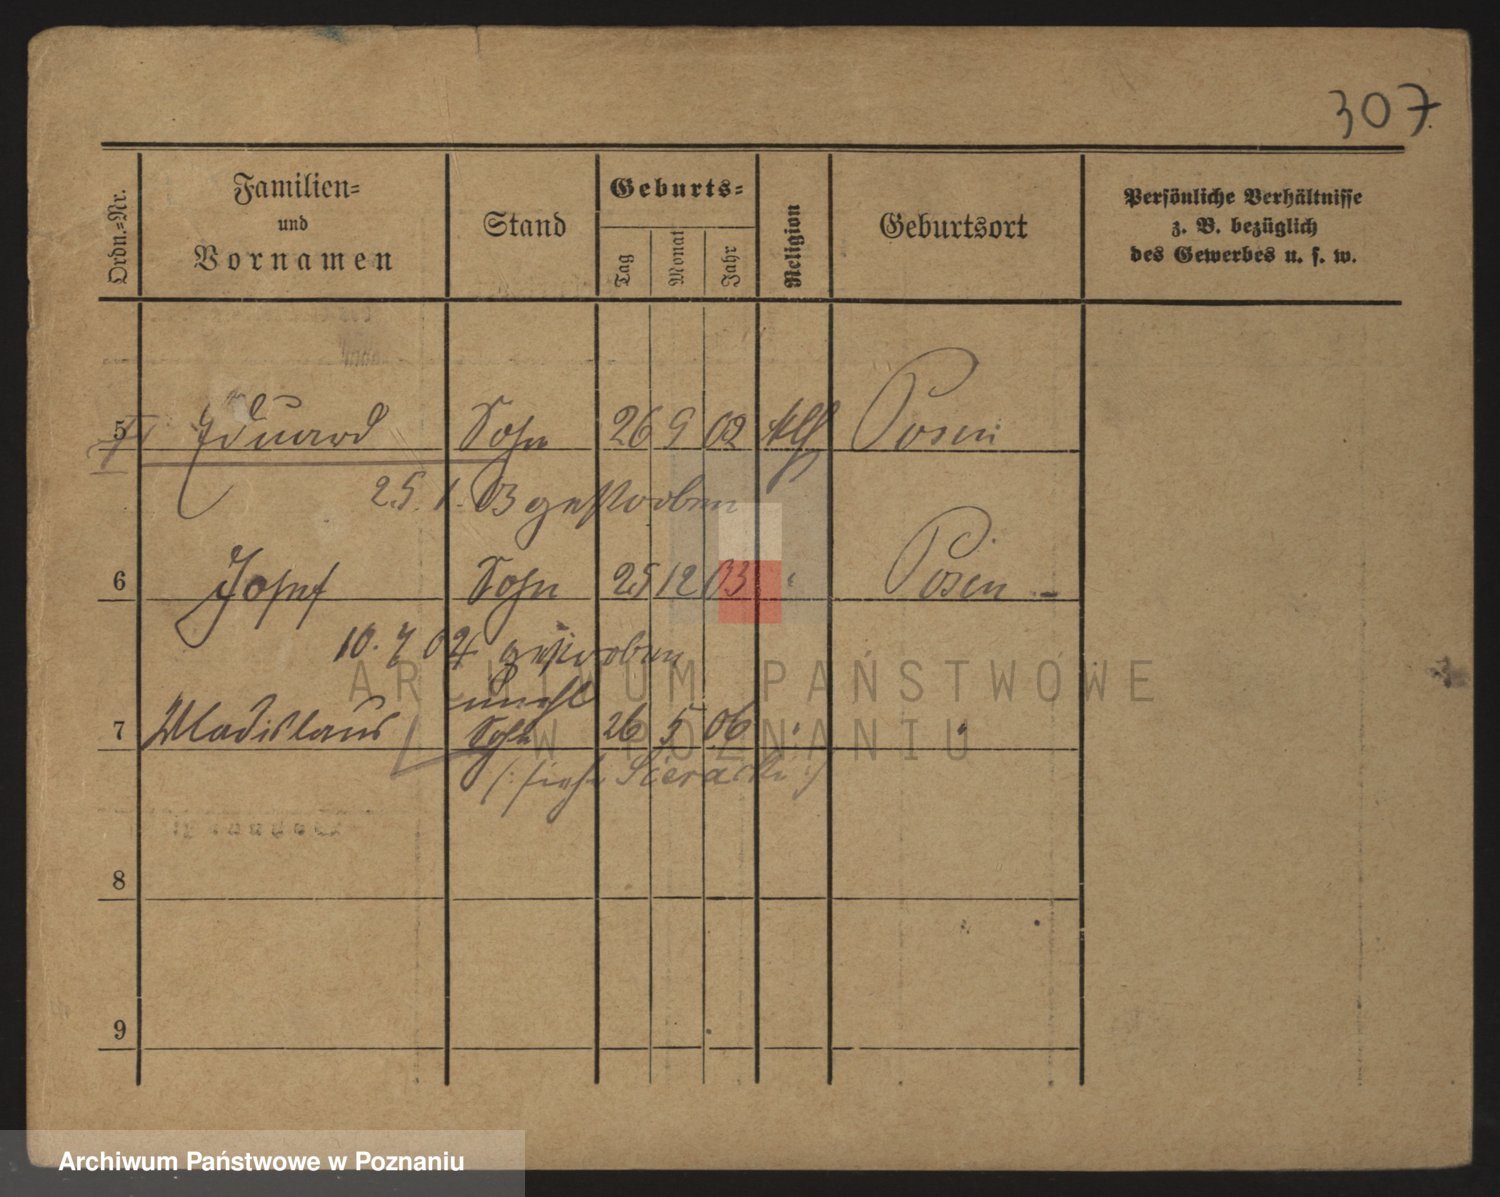 307.
Ordn.=Nr. Familien= und Vornamen Stand Geburts= Tag Monat Jahr Religion Geburtsort Persönliche Verhältnisse z. B. bezüglich des Gewerbes u. s. w.
5 Eduard Sohn 26 9 02 kth Posen
25. 1. 03 gestorben
6 Josef Sohn 25 12 03 " Posen
10. 7 04 gestorben
unehl
7 Wladislaus Sohn 26 5 06 " "
(: siehe Sieracki :)
8
9
ARCHIWUM PAŃSTWOWE
W POZNANIU
Archiwum Państwowe w Poznaniu